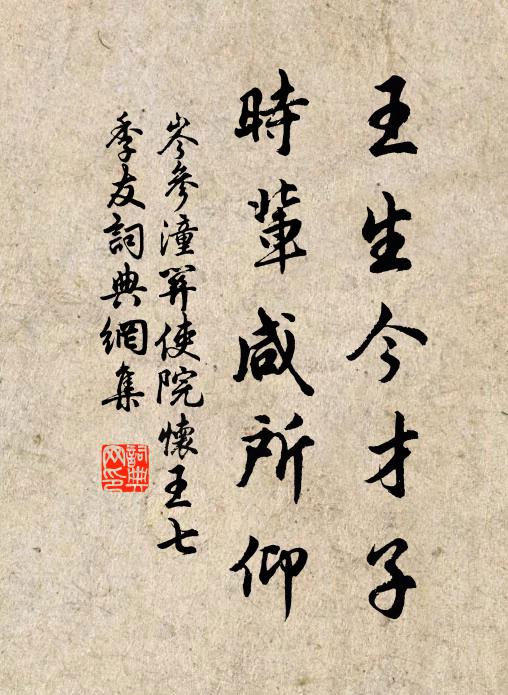 王生今才子
時輩咸所仰
岑參潼關使院懷王七
季友詞典網集
詞典网印